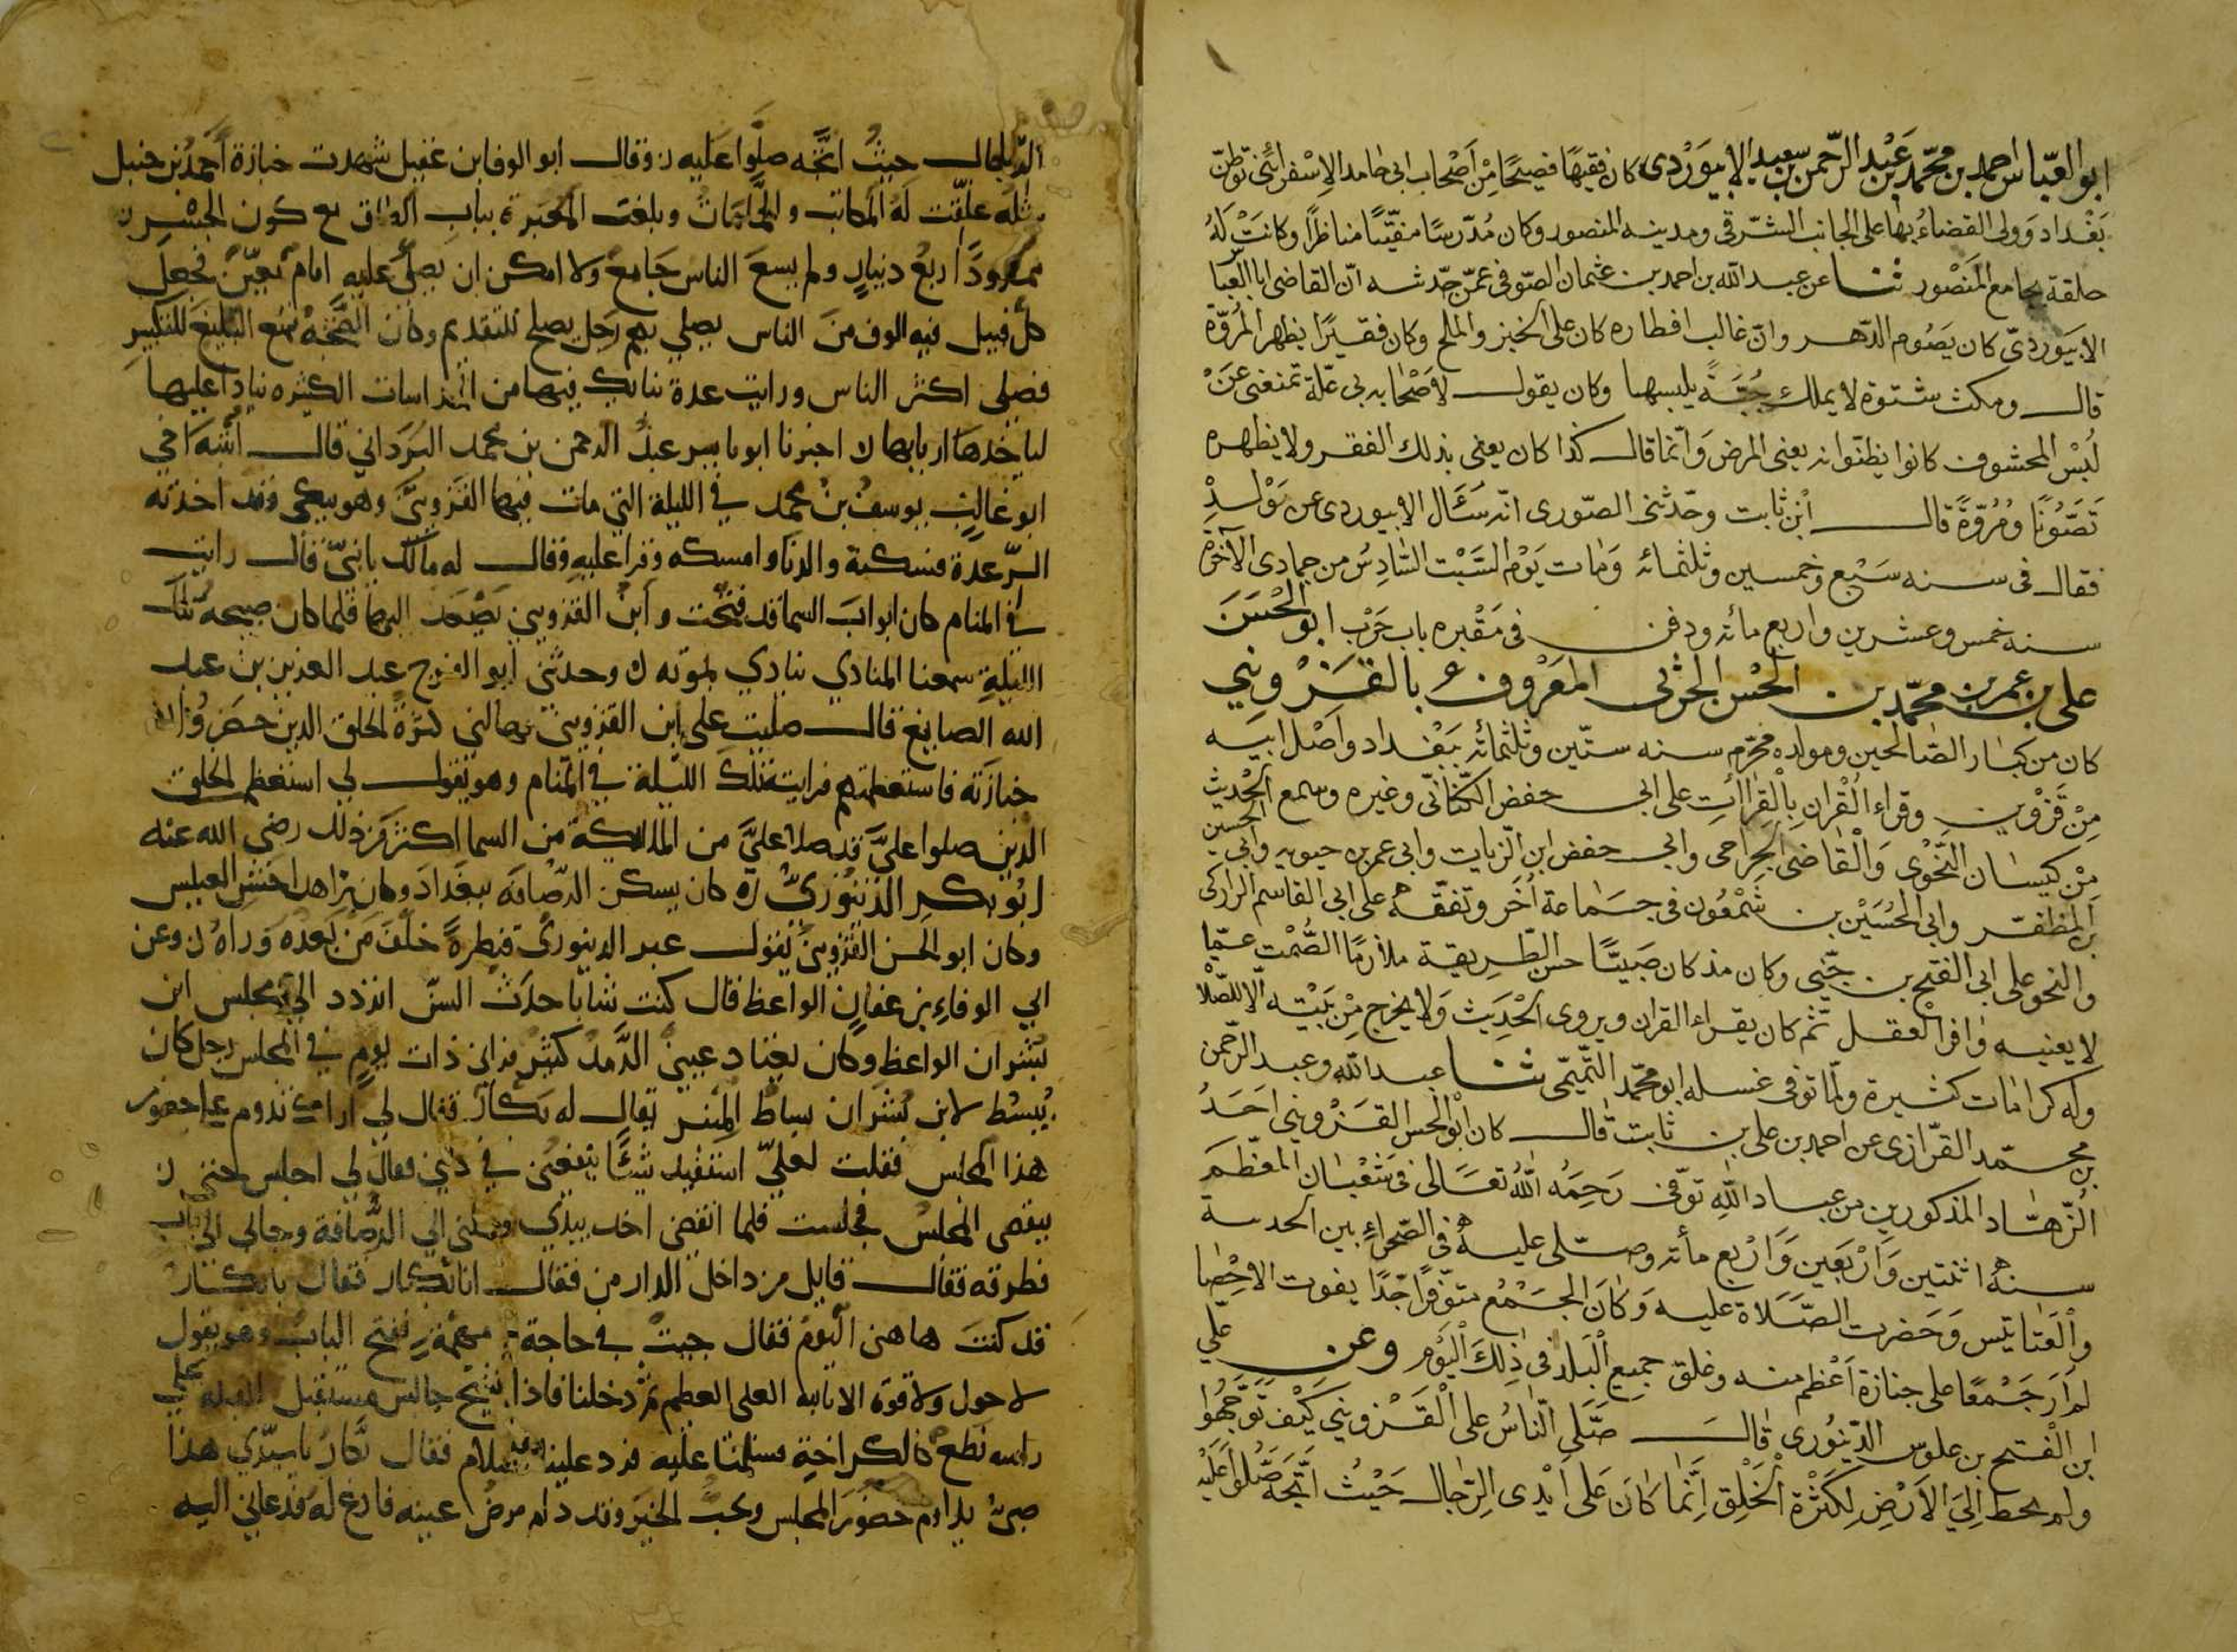 ابو العبّاس احمد بن محمّد بن عَبْد الرّحمن بن سعيد الابيوَرْدى كان فقيهًا فصيحًا مِنْ اَصْحاب ابى حامد الاِسْفرائنى توطّن
بَغْداد وَولى القضاءُ بها على الجانب الشّرقى ومدينه المنصور وكان مُدرّسًا مفتيًا مناظرًا وكانَتْ لَهُ
حلقة بجامع المَنْصُور ثنا عن عبد الله بن احمد بن عثمان الصّوفى عمّن حدّثه انّ القاضى ابا العبا
الابيوَردىّ كان يَصُوم الدّهر وانّ غالب افطاره كان على الخبز والملح وكان فقيرًا يظهر المُروّة
قال ومكث شتوة لا يملك جُبّةً يلبسها وكان يقول لاَصْحابه بى علّة تمنعنى عَنْ
لُبْس المحشوف كانوا يظنّوانه يعنى المرض وَانّما قال كذا كان يعنى بذلك الفقر ولا يظهره
تَصَوُّنًا ومُرُوّةً قال اُبْن ثابت وحدّثنى الصّورى انّه سَئَال الابيوردى عن مَوْلدِه
فقال فى سنه سَبْع وخمسين وثلثمائه وَمات يَوْم السَّبْت السّادِسُ من جمادى الآخرة
سنه خمس وعشرين واربع مائه ودفن فى مَقْبره باب حَرْب ابو الحْسَن
على بن عمر بن محمّد بن الحْسن الحربى المَعْرُوف بالقَزْوينى
كان من كبار الصّالحين ومولده محرّم سنه ستّين وثلثمائه بَبْغداد واَصْل ابيه
مِنْ قَزْوين وقراء القُرْان بِالْقِراائتِ على ابى حفض الكتّانىّ وغيره وسمع الحْديث
مِنْ كيسان النّحْوى وَالْقاضى الجراحى وابى حفض ابن الزّيات وابى عمر بن حيويه وابى الحسين
بن المظفّر وابى الحُسَيْن بن شمْعُون فى جَماعة اُخَر وتفقّه على ابى القاسم الداركى
والنحو على ابى الفتح بن جنّى وكان مذ كان صَبيًّا حسن الطّريقة ملازمًا الصُّمْت عمّا
لا يعنيه وافر العقل ثمّ كان يقراء القران ويروى الحْديث وَلا يخرج مِنْ بَيْته الّا للصّلاْ
وله كرامات كثيرة ولمّا توفى غسله ابو محمّد التّميمى ثنا عبد الله وعبد الرّحمن
بن محمّد القزّازى عن احمد بن على بن ثابت قال كان ابْو الحسن القَزْوينى احَدُ
الزّهّاد المذكورين من عباد الله توفّى رَحِمَهُ الله تعَالى فى شَعْبان المعظّم
سنه اثنتين وَارْبَعين وَارْبع مأته وصلّى عليه فى الصّحراءِ بين الحدبه
والْعَتابيّين وَحَضرت الصّلاة عليه وَكانَ الجمْعُ متوّفراً جدًا يفوت الاحْصا
لم اَر جَمْعًا على جنازة اَعْظم منه وغلق جميع الْبلد فى ذلِكَ الْيَوم وعن على
ابن الفتح بن علوس الدّينُورى قال صَلى النّاسُ على الْقَزوينى كيْف توجّهُوا
ولم يحط اِلَىَ الاَرْضِ لِكثْرة الْخلْق اِنّما كانَ على ايْدى الرّجال حَيْث اتّجهَ صَلّوا عَلَيْه
الرجال حيثُ اتَّجه صلّوا عليه ن وقال ابو الوفا ابن عقيل شهدت جنازة اَحمدُ بن حنبل
وبلغت المُعْبرة بباب مع كون الجسْرين
ممدودًا اربعُ دنيارٍ ولم يسعَ الناس جَامعٌ ولا امكن ان يصلى عليه امامٌ معيّنٌ فجعلَ
كلّ قبيل فيه الوف منَ الناس يصلي بهم رَجل يصلح للتقديم وكان الضَّجّة تمنع التبليغ للتكبير
فصلى اكثر الناس ورايت عدة من المداسات الكثيره نيادا عليها
لياخذها اربابها ن اخبرنا ابو ياسر عبدُ الرحمن بن محمد البَرَدَاني قال انتبه اخي
ابو غالبٍ يوسفُ بن محمد في الليلة التي مات فيها القَزوينيُّ وهو يبكي وقد اخذته
الرّعدة فسكنه والدنا وامسكه وقرا عليه وقال له مالك يا بنيّ قال رايت
في المنام كان ابوابَ السما قد فتحت وابنُ القزويني يَصْعَد اليها فلما كان صبيحه تلك
الليلةِ سمعنا المنادي ينادي بموته ن وحدثني ابو الفرج عبد العزيز بن عبد
الله الصايغ قال صليت على ابن القزويني فهالني كثرةُ الخلق الذين حضرُوا
جنازته فاستعظمتهم فرايته تلك الليلة في المنام وهو يقول لي استعظم الخلق
الذين صلوا عليَّ قد صلا عليَّ من الملايكة من السما اكثر من ذلك رضي الله عنه
ابُو بكر الدّينوريُّ ره كان يسكن الرّصافة ببغدادَ وكان زاهدا خشن العيش
وكان ابو الحسن القزوينيُّ يقول عبر الدينوري قنطرةً خلّف مَن بَعده وراه ن وعن
ابي الوفاءِ بن عقيلٍ الواعظ قال كنت شابا حدَثَ السنّ اتردد الي مجلس ابن
بُشران الواعظ وكان يعتاد عيني الرَّمدُ كثير فراني ذات يومٍ في المجلس رجل كان
يُبسُط لابن بُشران بساطُ المنبر يقال له بَكّار فقال لي اراك تدوم على حضور
هذا المجلس فقلت لعليّ استفيد شيئًا ينفعني في ديني فقال لي اجلس حتى ن
ينقضى المجلس فجلست فلما انقضى اخذ بيدي وحملني الى الرُّصافة وجا بي الى باب
فطرقه فقال قايل من داخل الدار من فقال انا بَكّار فقال يا بكّار
قد كنتَ هاهنا اليَوم فقال جيتُ في حاجة مهمّةٍ ففتح الباب وهو يقول
لا حول ولا قوة الا بالله العلي العظيم ثمّ دخلنا فاذا بشيخٌ جالس مستقبل القبلة على
راسه نطعٌ فسلمنا عليه فرد علينا السلام فقال بَكّار يا سيّدي هذا
صبىٌّ يداوم حضور المجلس ويحب الخيرَ وقد دام مرضُ عينه فادع لهُ فدعاني اليه